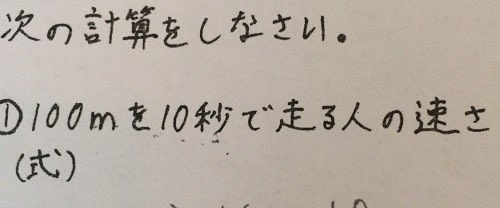 次の計算をしなさい。
①100mを10秒で走る人の速さ
(式)